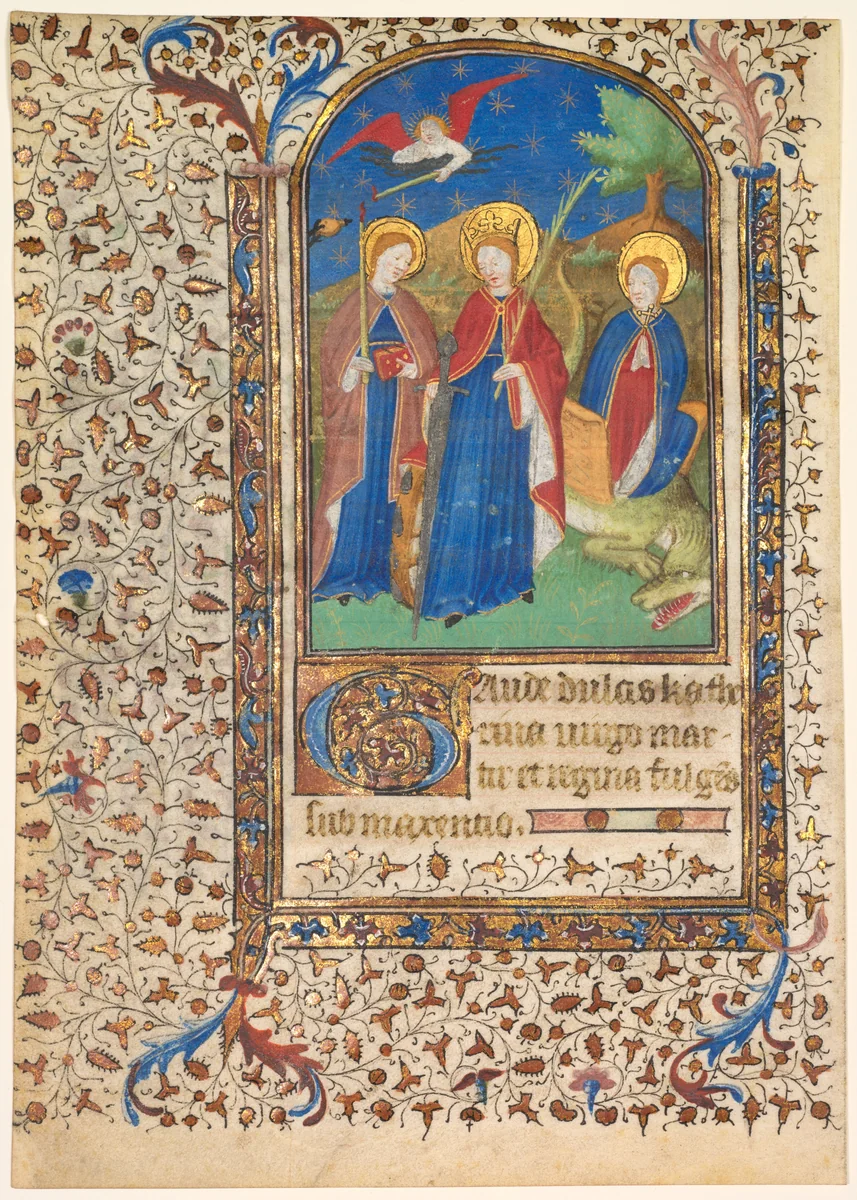 GAude dulcis kathe
rina uirgo mar-
tir et regina fulgēs
sub maxencio.